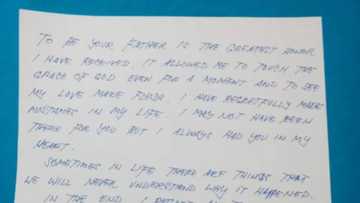 TO BE YOUR FATHER IS THE GREATEST HONOR
I HAVE RECEIVED. IT ALLOWED ME TO TOUCH THE
GRACE OF GOD EVEN FOR A MOMENT AND TO SEE
MY LOVE MADE FLESH. I HAVE REGRETFULLY MADE
MISTAKES IN MY LIFE. I MAY NOT HAVE BEEN
THERE FOR YOU BUT I ALWAYS HAD YOU IN MY
HEART.
SOMETIMES IN LIFE THERE ARE THINGS THAT
WE WILL NEVER UNDERSTAND WHY IT HAPPENED.
IN THE END, I